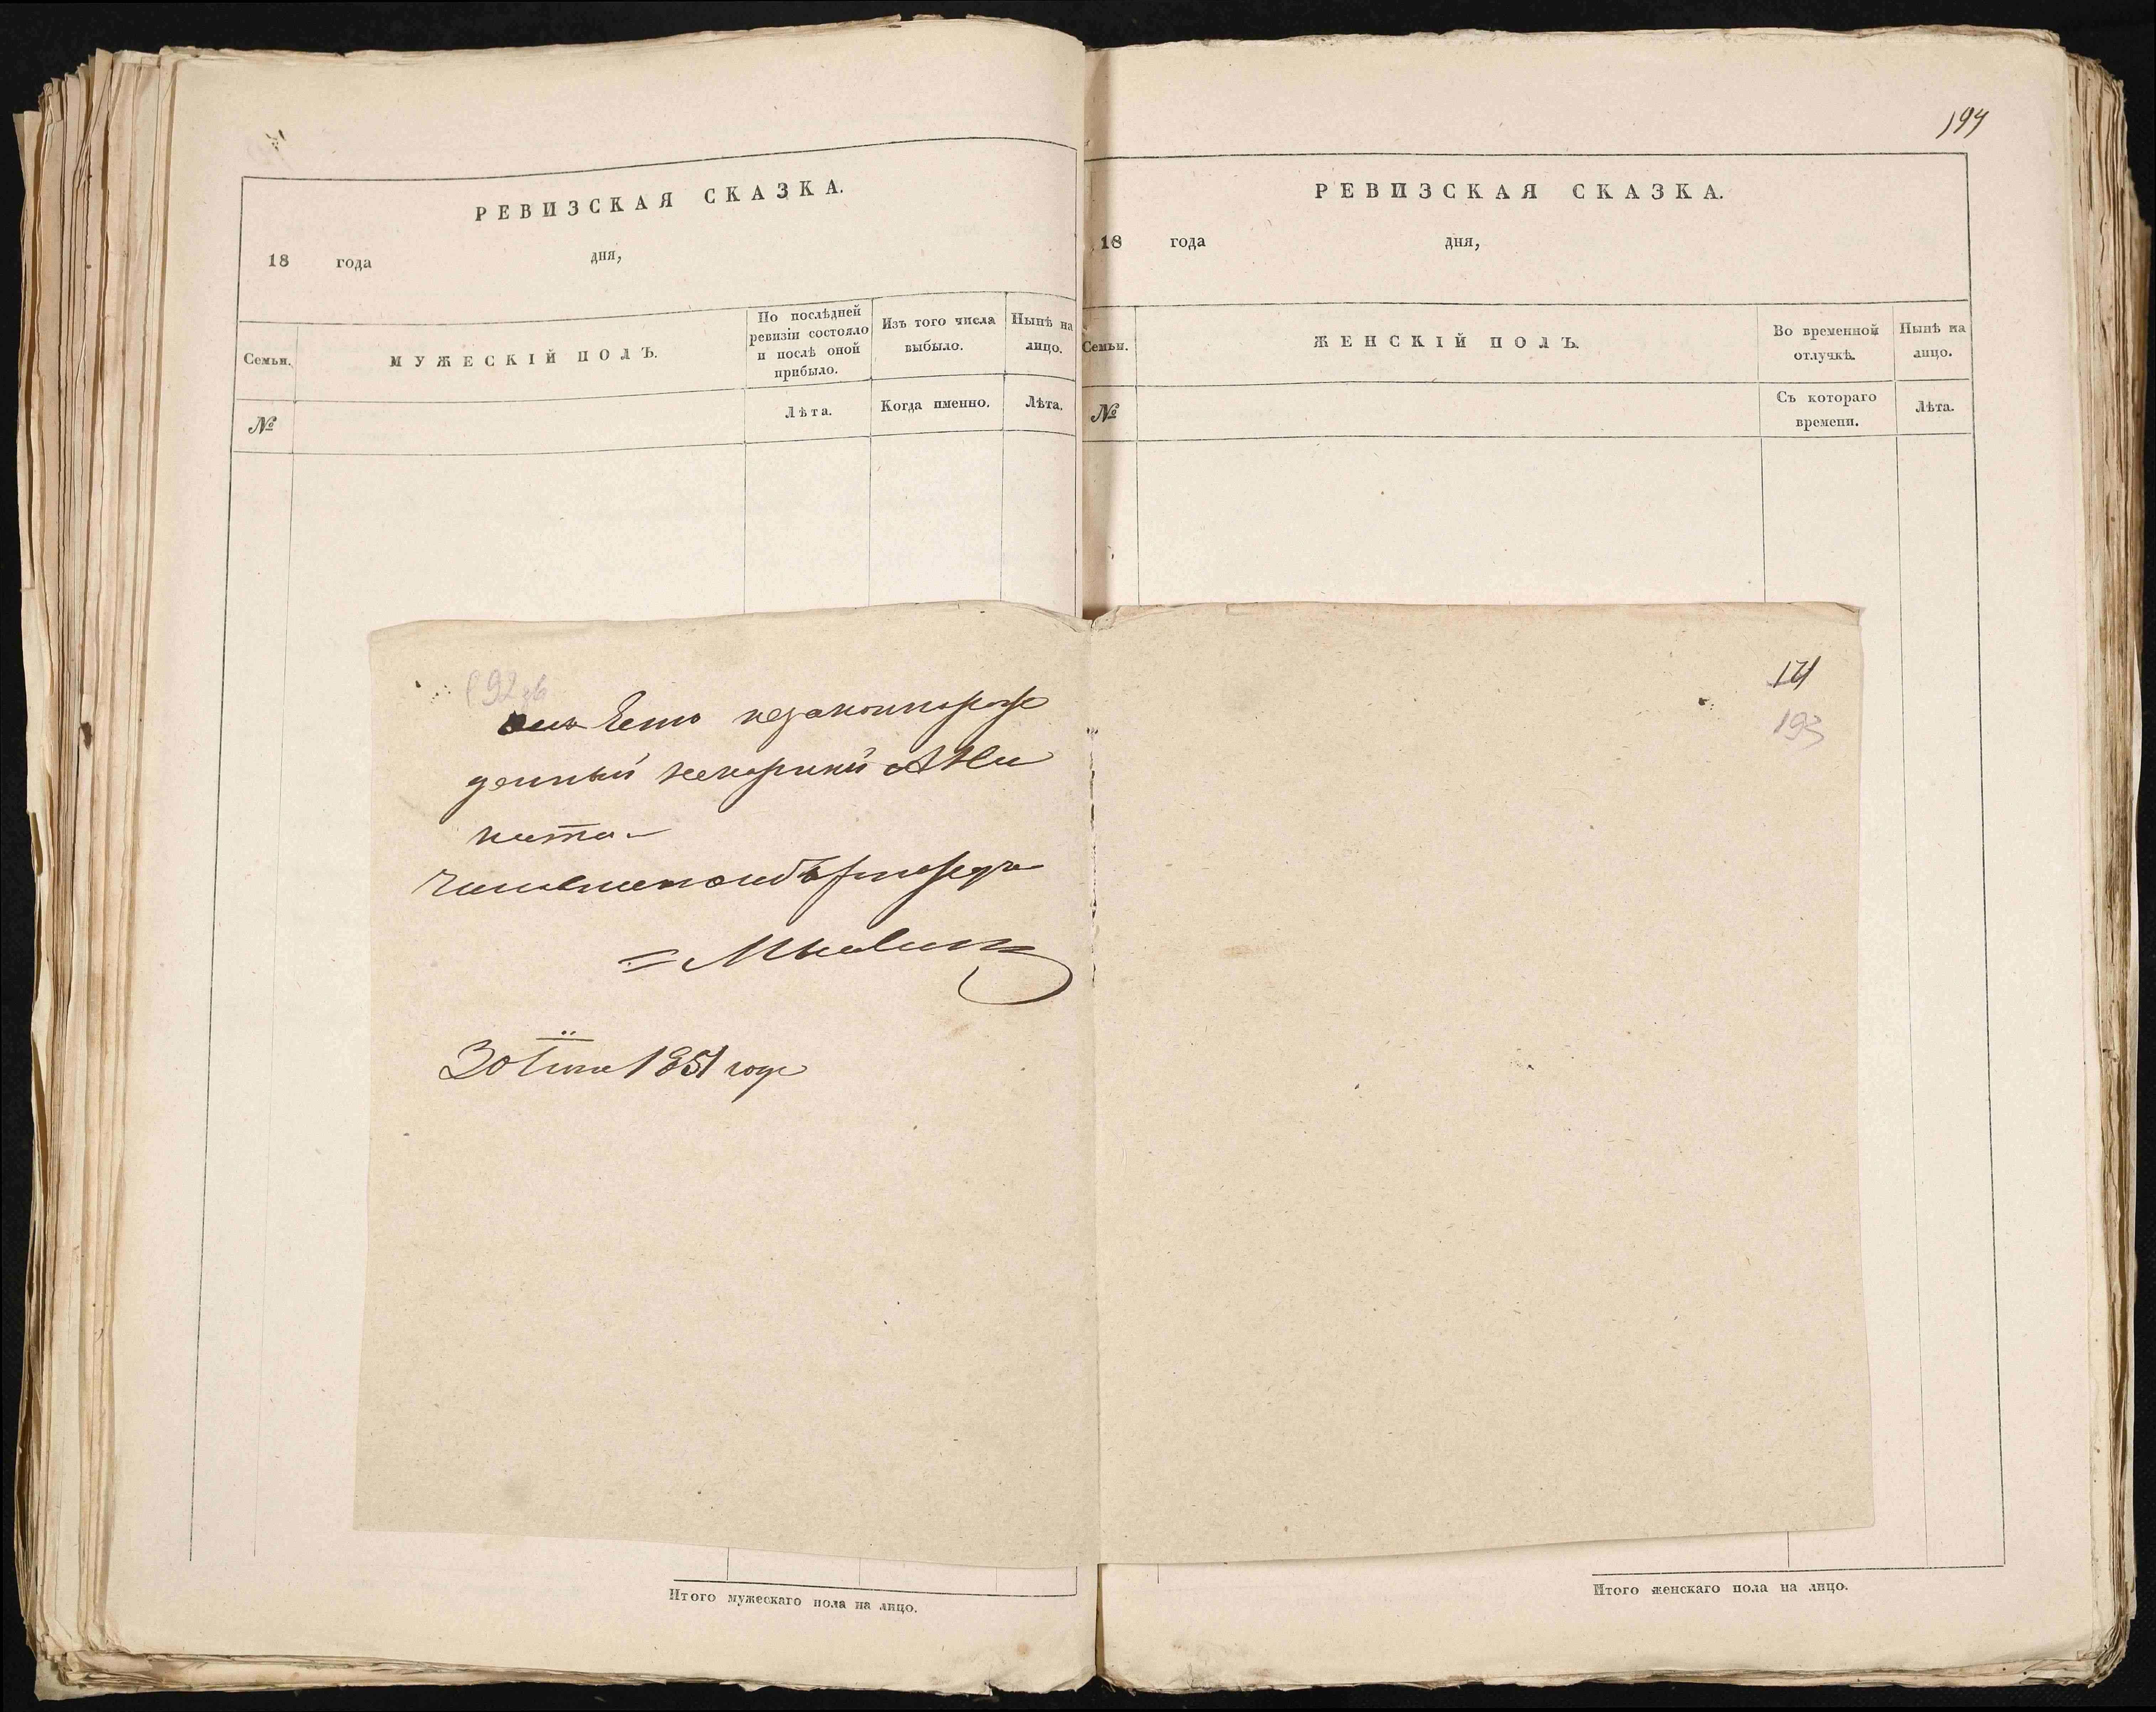 РЕВИЗСКАЯ СКАЗКА.
18 года дня,
Семьи.
МУЖЕСКІЙ ПОЛЪ.
По послѣдней
ревизіи состояло
и послѣ оной
прибыло.
Изъ того числа
выбыло.
Нынѣ на
лицо.
№
Лѣта.
Когда именно.
Лѣта.
Итого мужескаго пола на лицо.
194
РЕВИЗСКАЯ СКАЗКА.
18 года дня,
Семьи.
ЖЕНСКІЙ ПОЛЪ.
Во временной
отлучкѣ.
Нынѣ на
лицо.
№
Съ котораго
времени.
Лѣта.
Итого женскаго пола на лицо.
незаконнорож
денный
кита
30 1851 года
193